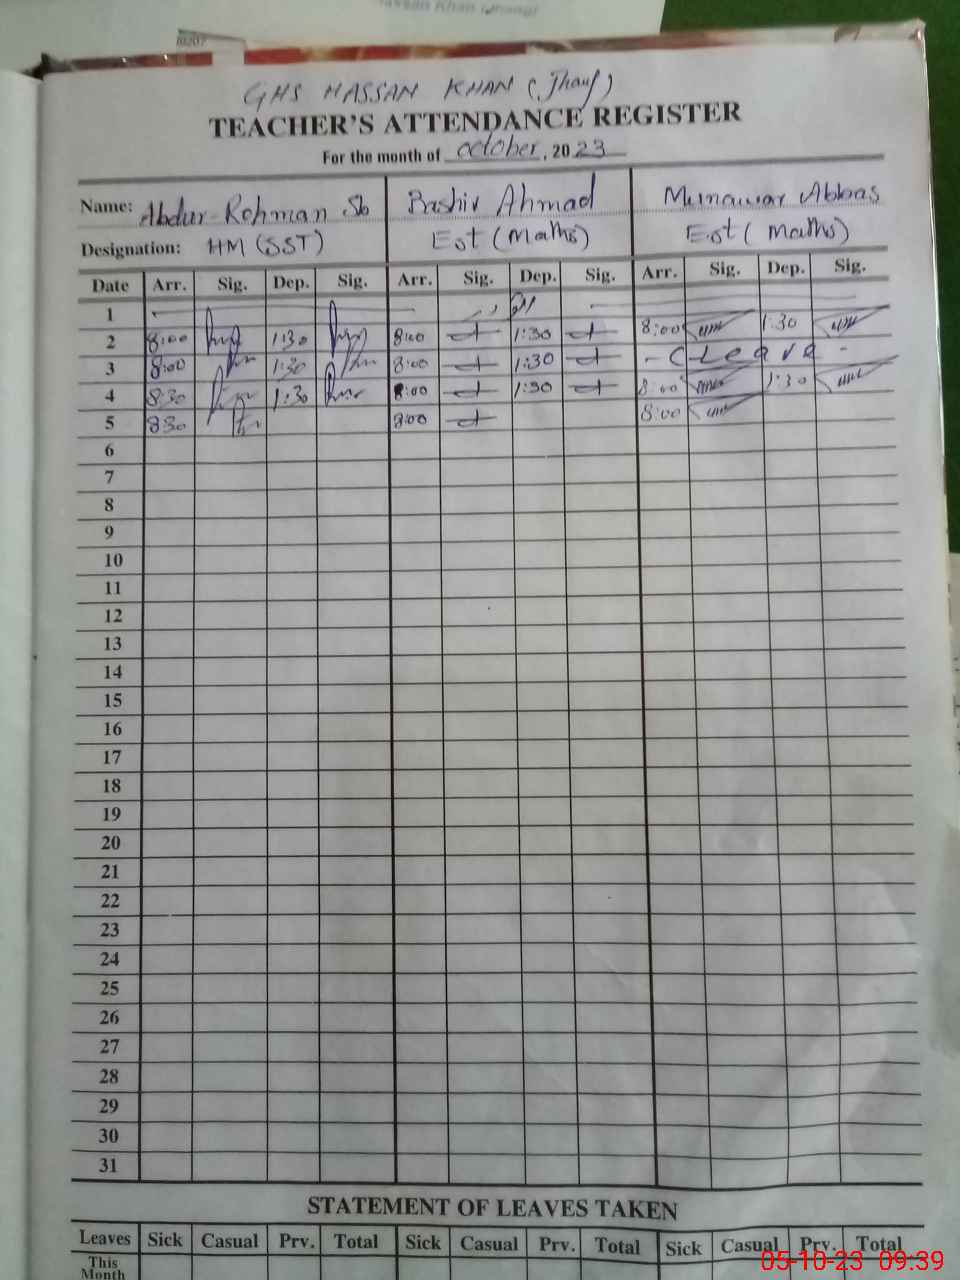 Hassan Khan (Jhang)
GHS HASSAN KHAN (Jhang)
TEACHER'S ATTENDANCE REGISTER
For the month of October, 2023
Name: Abdur Rehman Sb Bashir Ahmad Munawar Abbas
Designation: HM (SST) Est (Maths) Est (Maths)
Date Arr. Sig. Dep. Sig. Arr. Sig. Dep. Sig. Arr. Sig. Dep. Sig.
1
2 8:00 1:30 8:00 1:30 8:00 1:30
3 8:00 1:30 8:00 1:30 - C Leave -
4 8:30 1:30 8:00 1:30 8:00 1:30
5 8:30 8:00 8:00
6
7
8
9
10
11
12
13
14
15
16
17
18
19
20
21
22
23
24
25
26
27
28
29
30
31
STATEMENT OF LEAVES TAKEN
Leaves Sick Casual Prv. Total Sick Casual Prv. Total Sick Casual Prv. Total
This
Month
05-10-23 09:39